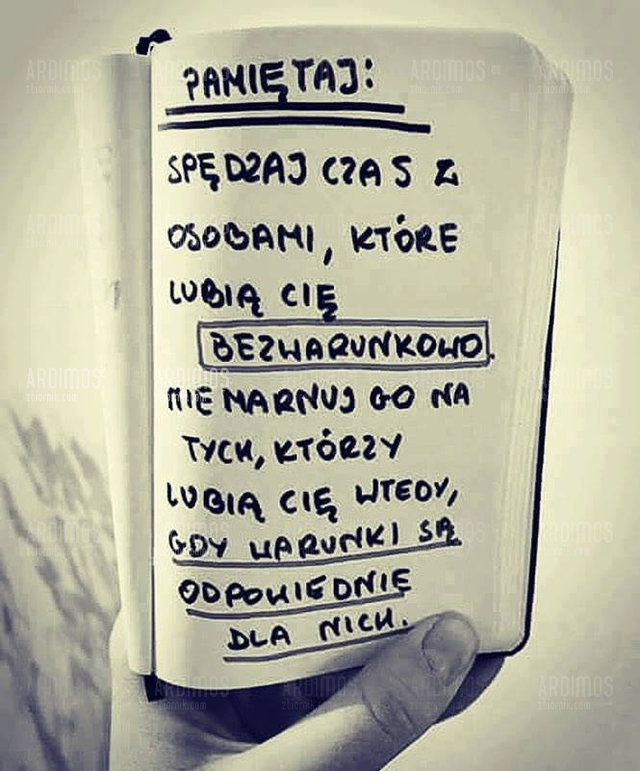 PAMIĘTAJ:
SPĘDZAJ CZAS Z
OSOBAMI, KTÓRE
LUBIĄ CIĘ
BEZWARUNKOWO.
NIE MARNUJ GO NA
TYCH, KTÓRZY
LUBIĄ CIĘ WTEDY,
GDY WARUNKI SĄ
ODPOWIEDNIĘ
DLA NICH.
ARDIMOS
zbiornik.com